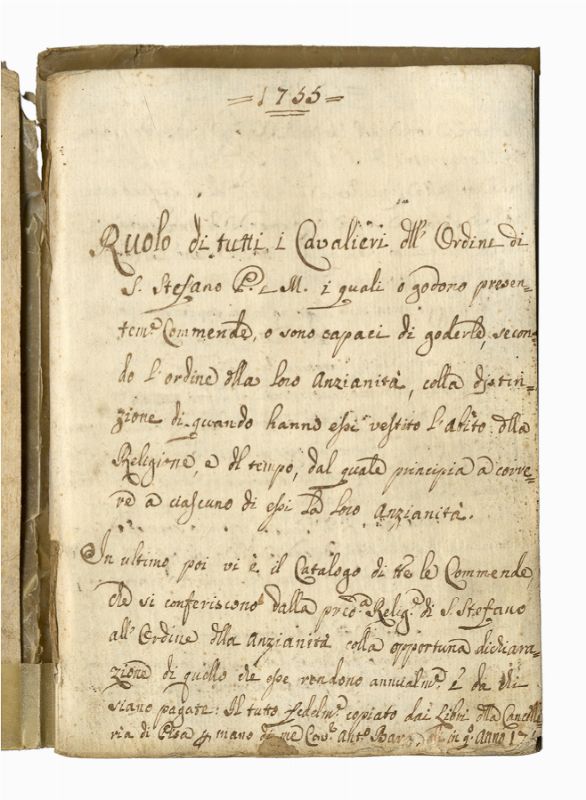 = 1755 =
Ruolo di tutti i Cavalieri dll' Ordine di
S. Stefano P. e M. i quali o godono presen=
tem.e Commende, o sono capaci di goderle, secon=
do l'ordine dlla loro Anzianità, colla distin=
zione di quando hanno essi vestito l'abito dlla
Religione, e dl tempo, dal quale principia a corre=
re a ciascuno di essi la loro Anzianità.
In ultimo poi vi è il Catalogo di tte le Commende,
che si conferiscono dalla Relig.e di S. Stefano
all' Ordine dlla Anzianità colla opportuna dichiara=
zione di quello che esse rendono annualm.e e da chi
siano pagate: Il tutto fedelm.e copiato dai Libri dlla Cancelle
ria di Pisa mano di me Cav.e Ant.o in q.o Anno